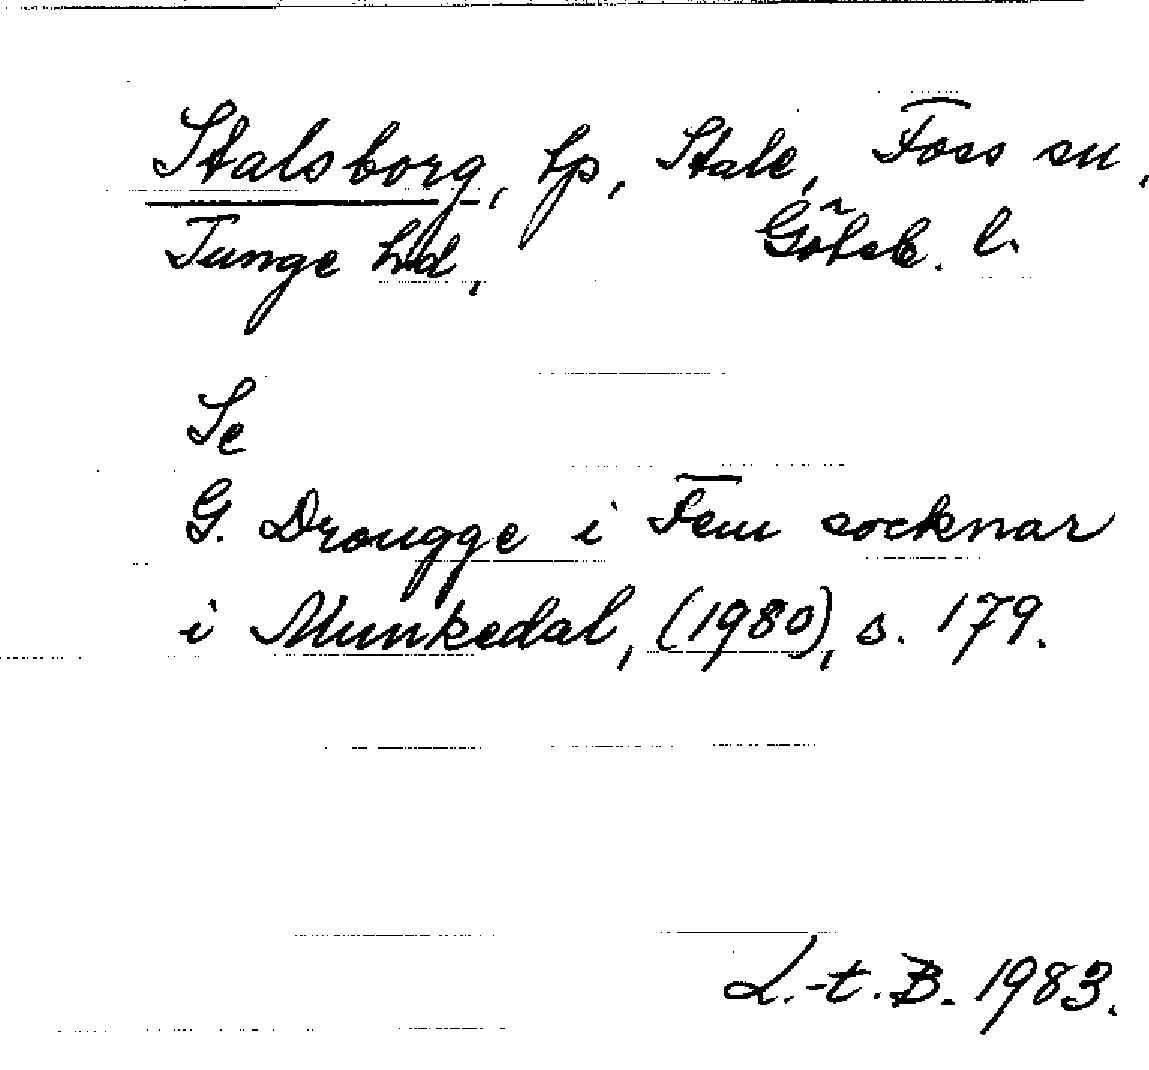 Stalsborg, tp, Stale, Foss sn,
Tunge hd, Göteb. l.
Se
G. Drougge i Fem socknar
i Munkedal, (1980), s. 179.
L.-t. B. 1983.